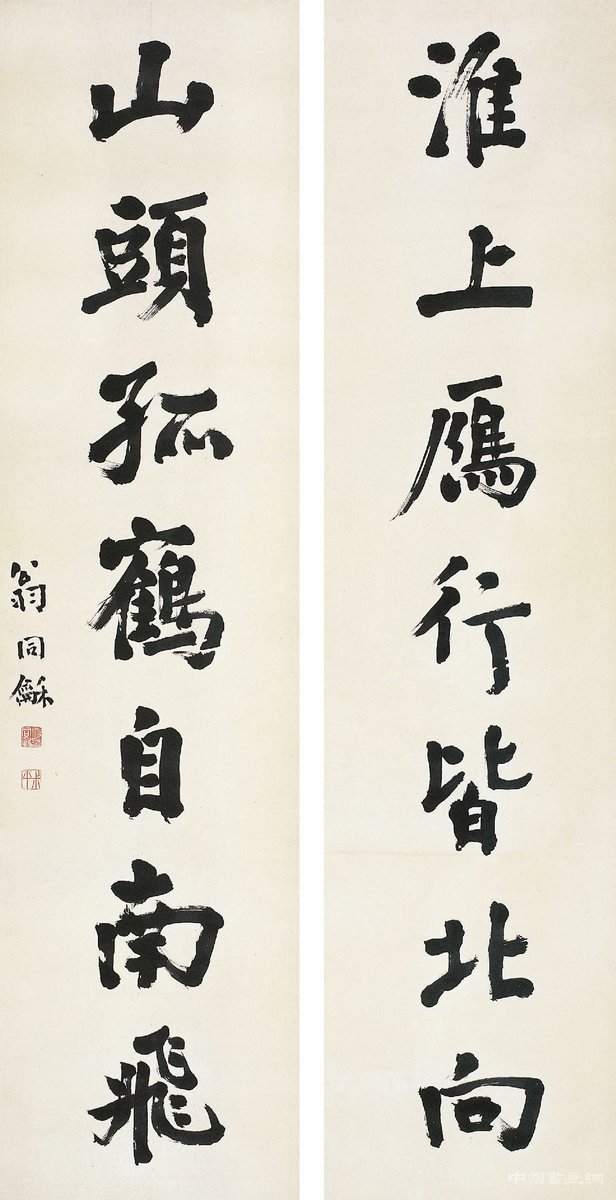 淮上鴈行皆北向
山頭孤鶴自南飛
翁同龢
中国書画網